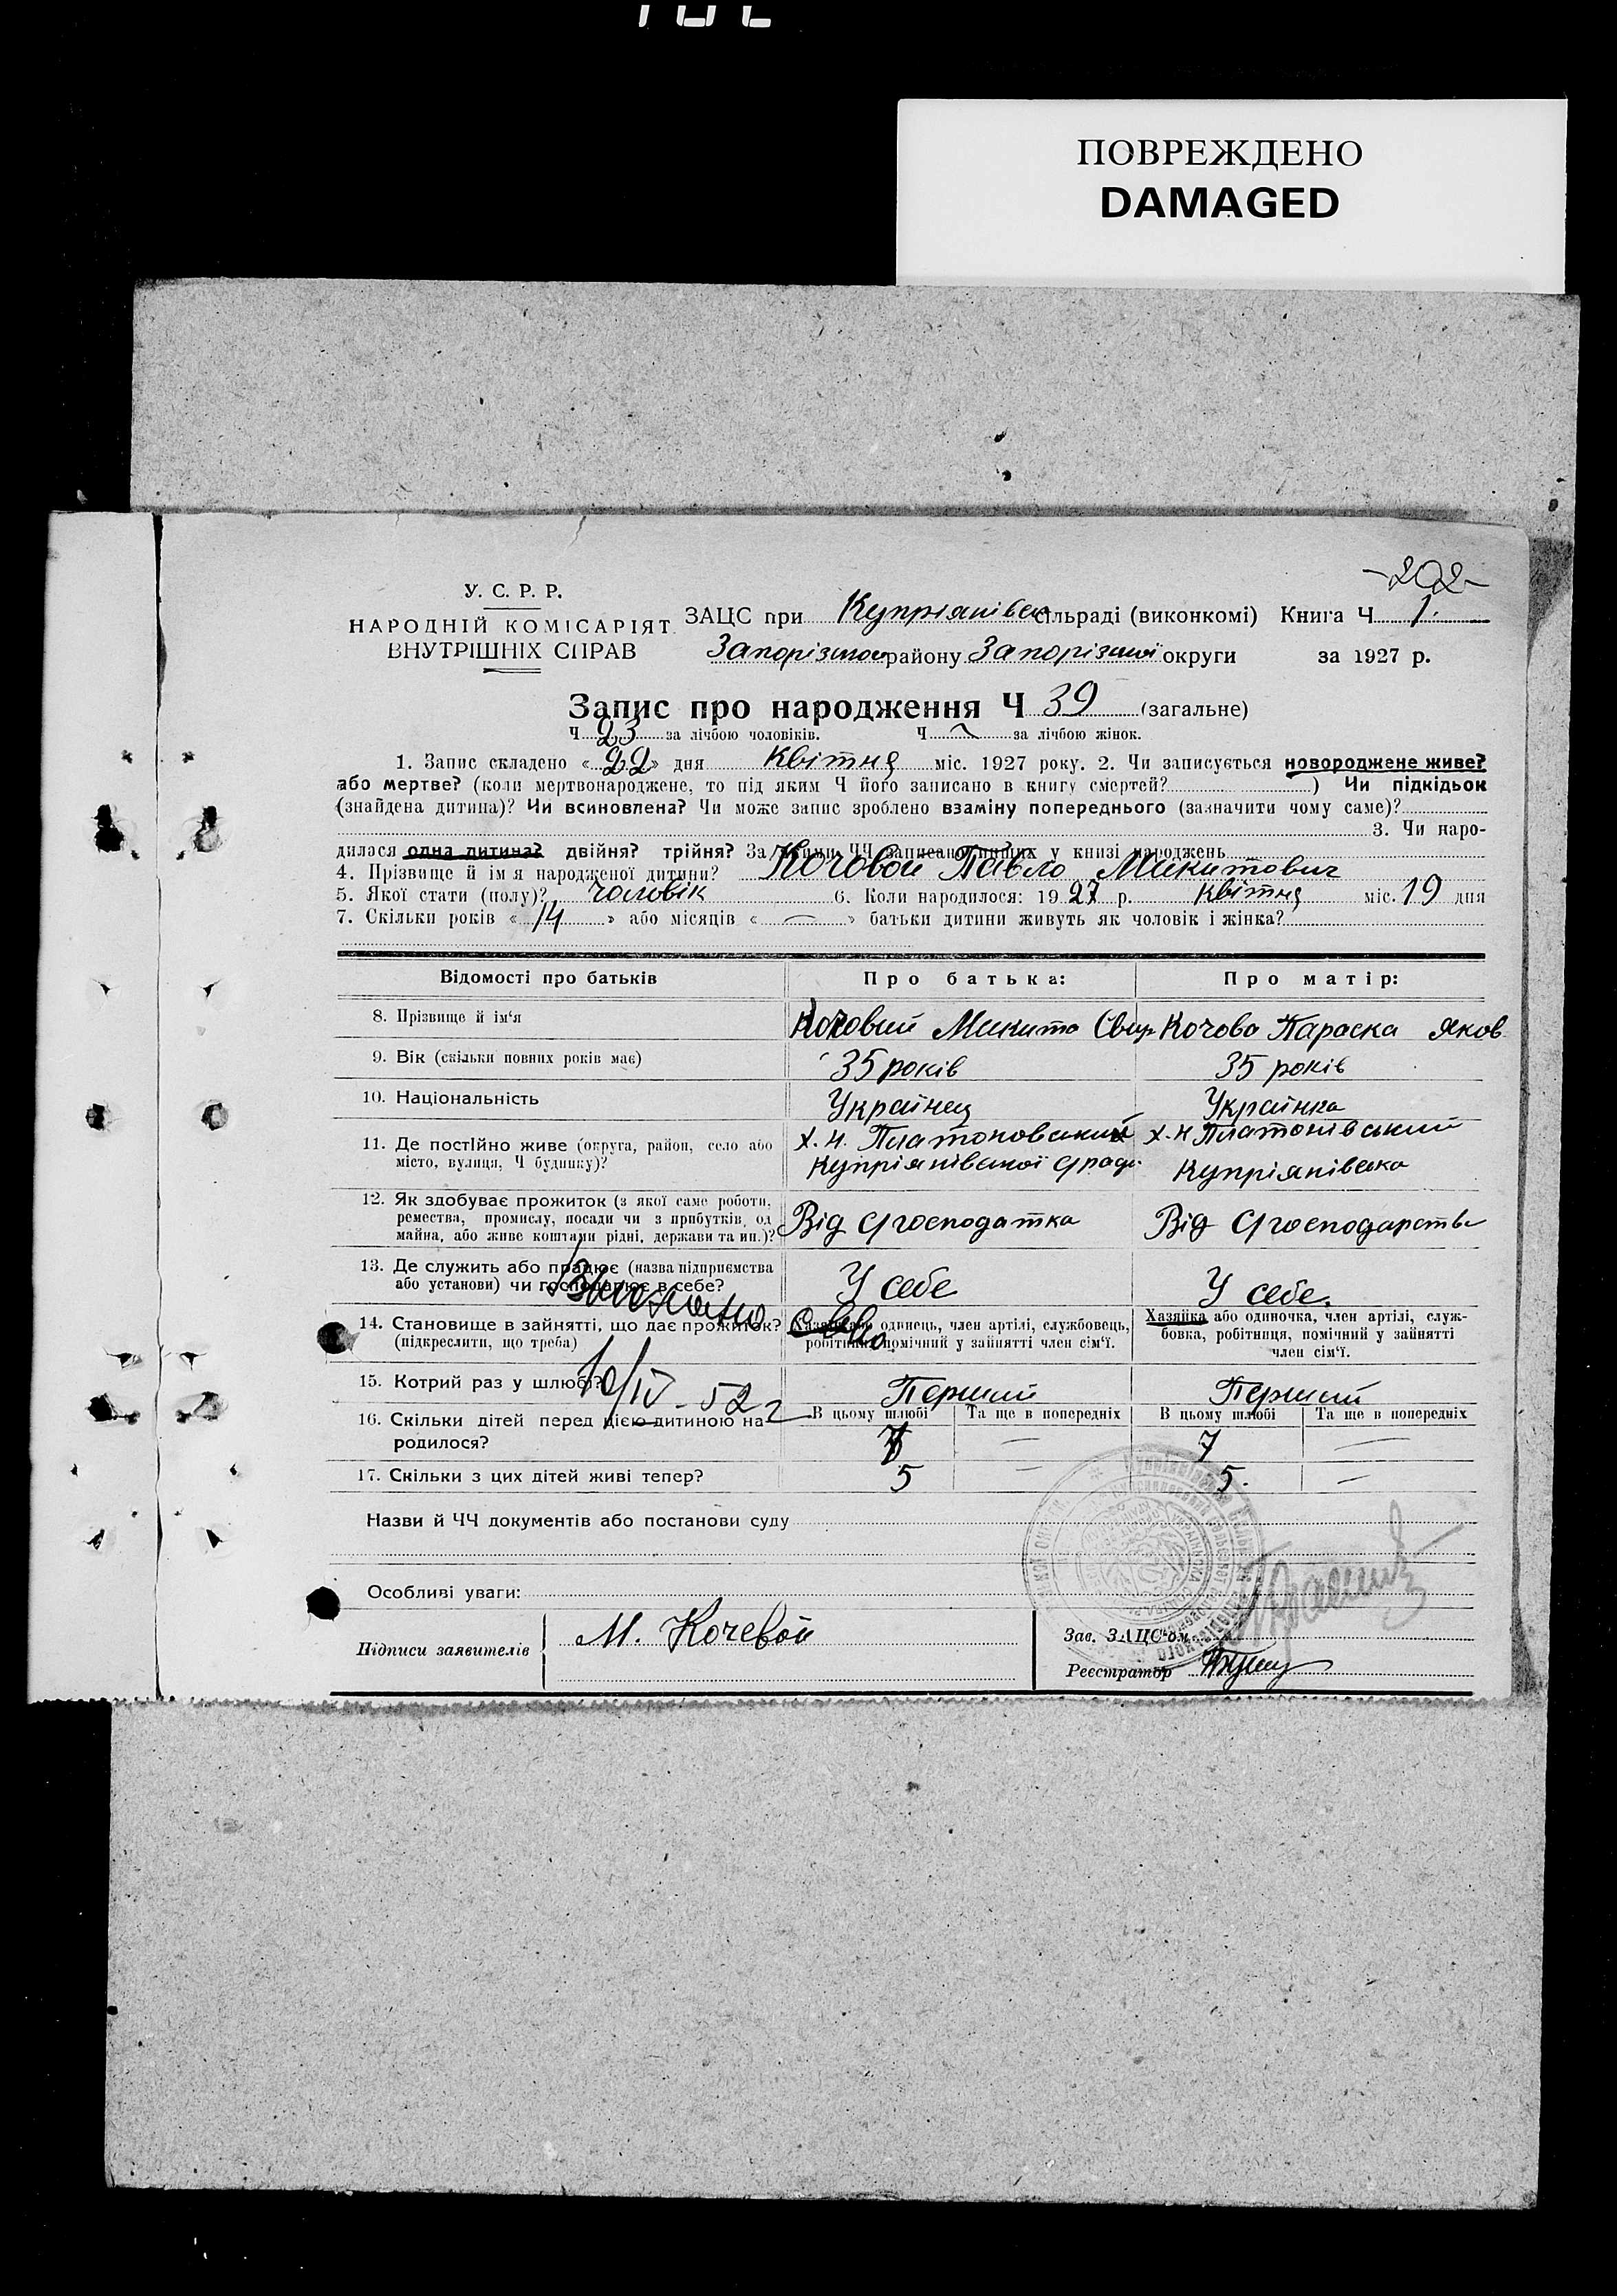 ПОВРЕЖДЕНО
DAMAGED
-202-
У. С. Р. Р.
НАРОДНІЙ КОМІСАРІЯТ
ВНУТРІШНІХ СПРАВ
ЗАЦС при Купріянівськ сільраді (виконкомі) Книга Ч 1.
Запорізького району Запорізької округи за 1927 р.
Запис про народження Ч 39 (загальне)
Ч 23 за лічбою чоловіків. Ч за лічбою жінок.
1. Запис складено « 22 » дня Квітня міс. 1927 року. 2. Чи записується новороджене живе?
або мертве? (коли мертвонароджене, то під яким Ч його записано в книгу смертей? ) Чи підкідьок
(знайдена дитина)? Чи всиновлена? Чи може запис зроблено взаміну попереднього (зазначити чому саме)?
3. Чи наро-
дилася одна дитина? двійня? трійня? За якими ЧЧ записано инших у книзі народжень
4. Прізвище й ім'я народженої дитини? Кочовой Павло Микитович
5. Якої стати (полу)? чоловік 6. Коли народилося: 1927 р. квітня міс. 19 дня
7. Скільки років « 14 » або місяців « — » батьки дитини живуть як чоловік і жінка?
Відомості про батьків Про батька: Про матір:
8. Прізвище й ім'я Кочовий Микита Свир Кочова Параска Яков
9. Вік (скільки повних років має) 35 років 35 років
10. Національність Українец Українка
11. Де постійно живе (округа, район, село або х. н. Платоновський х. н Платонівський
місто, вулиця, Ч будинку)? Купріянівської Купріянівска
12. Як здобуває прожиток (з якої саме роботи,
ремества, промислу, посади чи з прибутків, од Від Від
майна, або живе коштами рідні, держави та ин.)?
13. Де служить або працює (назва підприємства
або установи) чи господарює в себе? У себе У себе.
14. Становище в зайнятті, що дає прожиток? Хазяїн або одинець, член артілі, службовець, Хазяйка або одиночка, член артілі, служ-
(підкреслити, що треба) робітник, помічний у зайнятті член сім'ї. бовка, робітниця, помічний у зайнятті
член сім'ї.
15. Котрий раз у шлюбі? Перший Перший
10/IV - 52 г
16. Скільки дітей перед цією дитиною на- В цьому шлюбі Та ще в попередніх В цьому шлюбі Та ще в попередніх
родилося? 7 — 7 —
17. Скільки з цих дітей живі тепер? 5 — 5. —
Назви й ЧЧ документів або постанови суду
Особливі уваги:
Підписи заявителів М. Кочевой
Зав. ЗАЦС'ом
Реєстратор